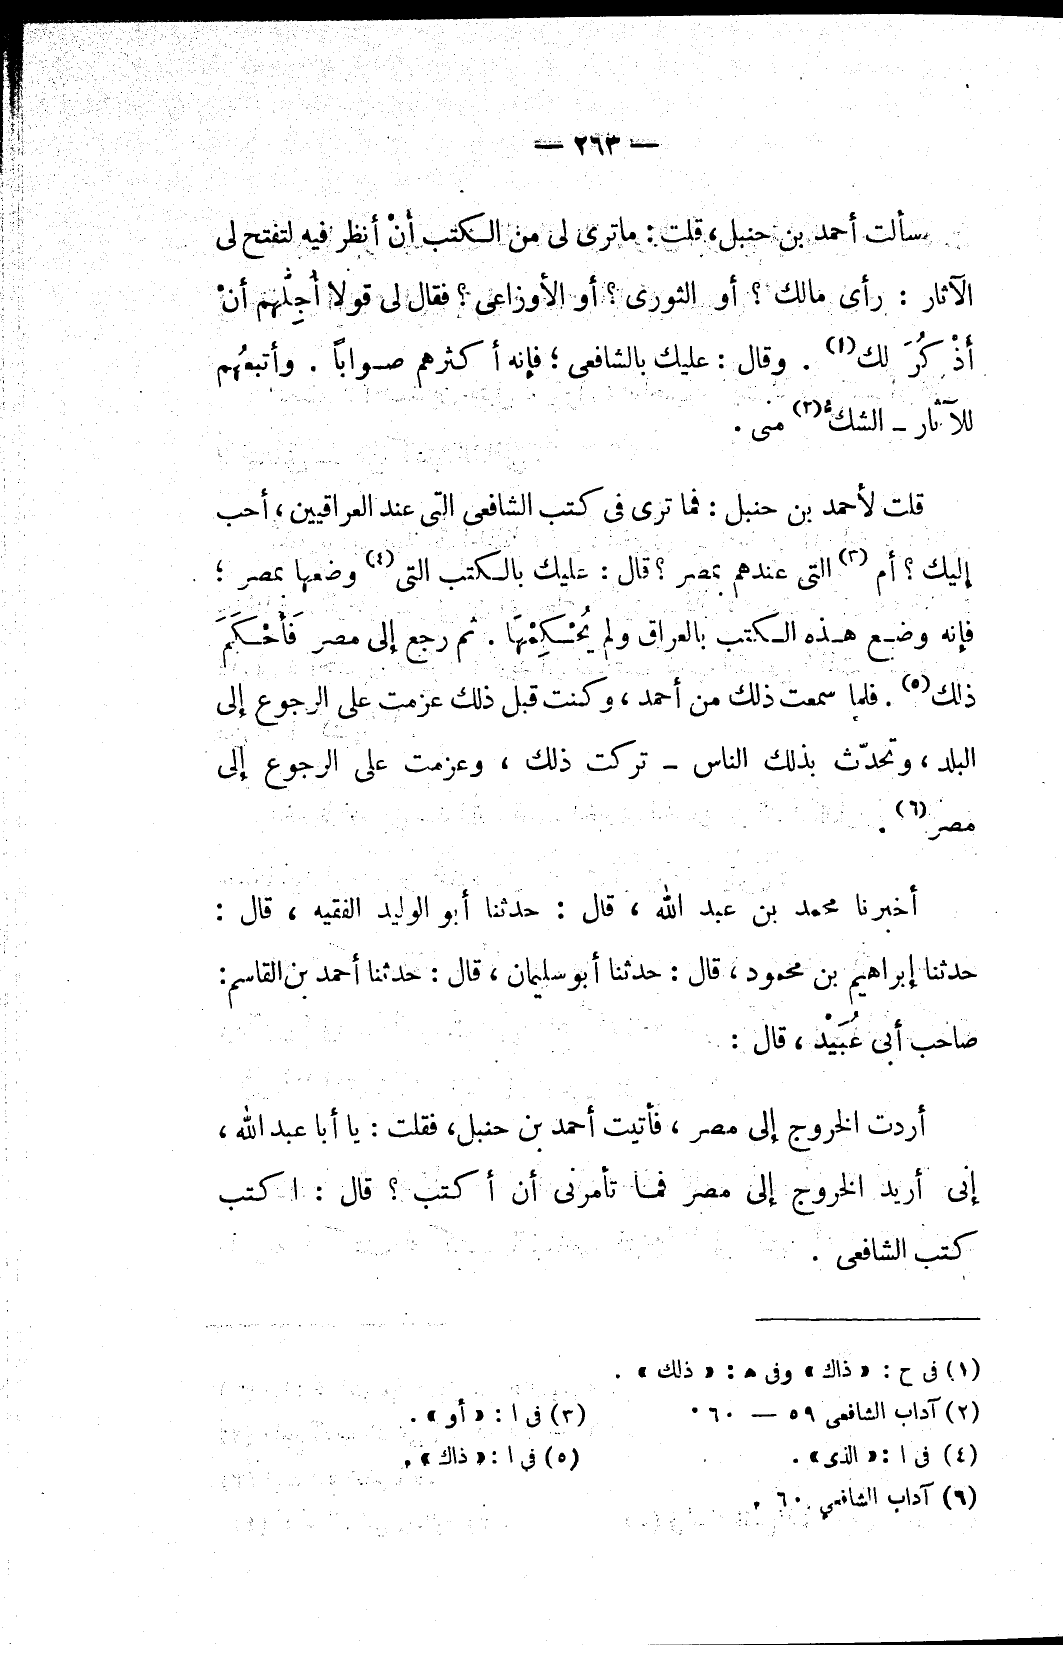 — ٢٦٣ —
سألت أحمد بن حنبل، قلت : ماترى لى من الكتب أنْ أنظر فيه لتفتح لى
الآثار : رأى مالك ؟ أو الثورى ؟ أو الأوزاعى ؟ فقال لى قولا أُجِلُّهم أنْ
أذْكُرَ لك(١) . وقال : عليك بالشافعى ؛ فإنه أكثرهم صواباً . وأتبعُهم
للآثار – الشك(٢) منى .
قلت لأحمد بن حنبل : فما ترى فى كتب الشافعى التى عند العراقيين ، أحب
إليك ؟ أم (٣) التى عندهم بمصر ؟ قال : عليك بالكتب التى(٤) وضعها بمصر ؛
فإنه وضع هذه الكتب بالعراق ولم يُحْكِمْهَا . ثم رجع إلى مصر فَأَحْكَمَ
ذلك(٥) . فلما سمعت ذلك من أحمد ، وكنت قبل ذلك عزمت على الرجوع إلى
البلد ، وتحدّث بذلك الناس – تركت ذلك ، وعزمت على الرجوع إلى
مصر(٦) .
أخبرنا محمد بن عبد الله ، قال : حدثنا أبو الوليد الفقيه ، قال :
حدثنا إبراهيم بن محمود ، قال : حدثنا أبو سليمان ، قال : حدثنا أحمد بن القاسم :
صاحب أبى عُبَيْد ، قال :
أردت الخروج إلى مصر ، فأتيت أحمد بن حنبل، فقلت : يا أبا عبد الله ،
إنى أريد الخروج إلى مصر فما تأمرنى أن أكتب ؟ قال : اكتب
كتب الشافعى .
(١) فى ح : « ذاك » وفى ه : « ذلك » .
(٢) آداب الشافعى ٥٩ — ٦٠ . (٣) فى ا : « أو » .
(٤) فى ا : « الذى » . (٥) فى ا : « ذاك » .
(٦) آداب الشافعي ٦٠ .